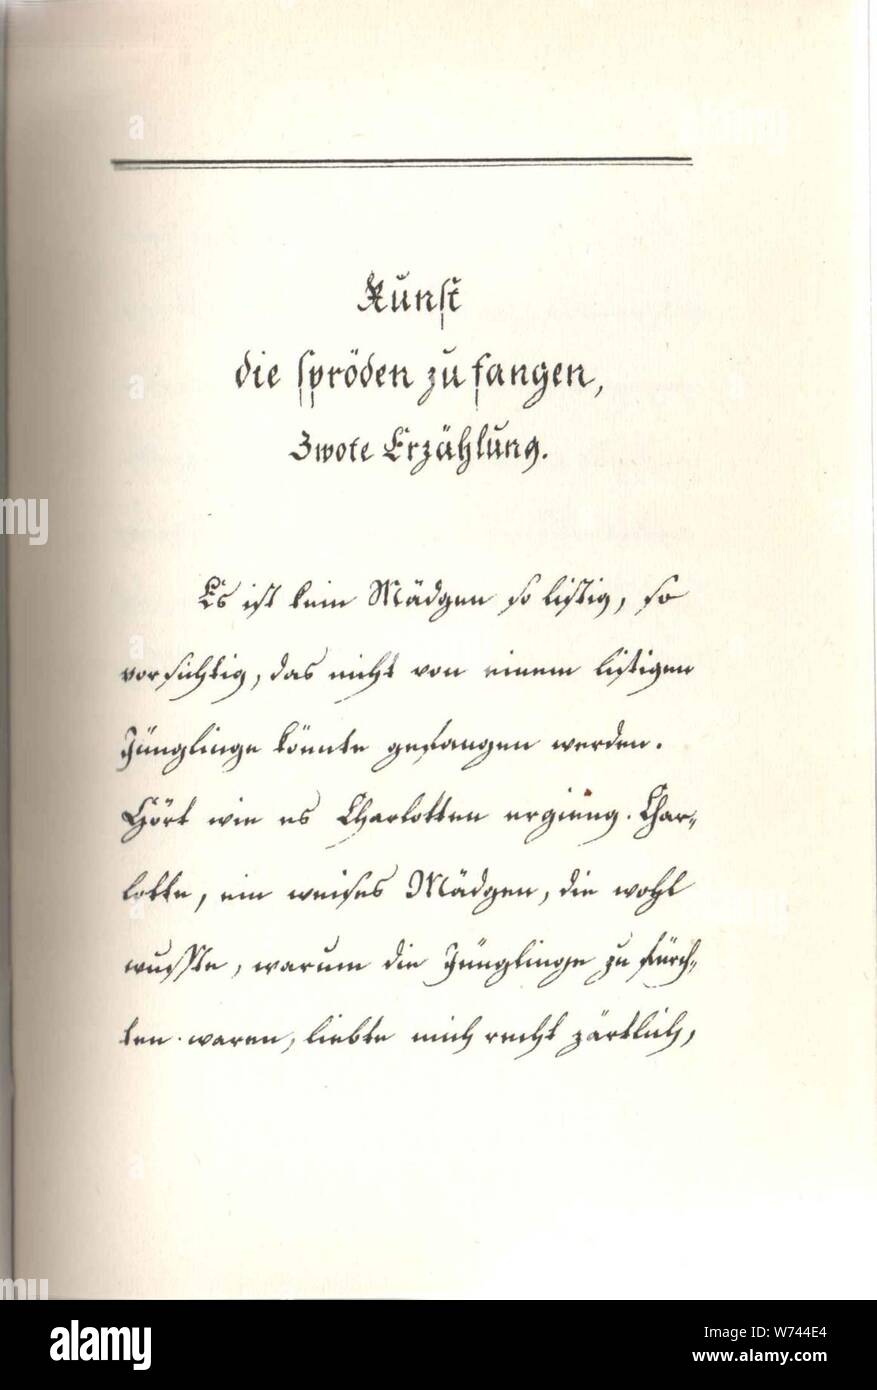 Kunst
die spröden zu fangen,
Zwote Erzählung.
Es ist kein Mädgen so listig, so
vorsichtig, das nicht von einem listigen
Jünglinge könnte gefangen werden.
Hört wie es Charlotten ergieng. Char-
lotte, ein weises Mädgen, die wohl
wusste, warum die Jünglinge zu fürch-
ten waren, liebte mich recht zärtlich,
alamy
Image ID: W744E4
www.alamy.com